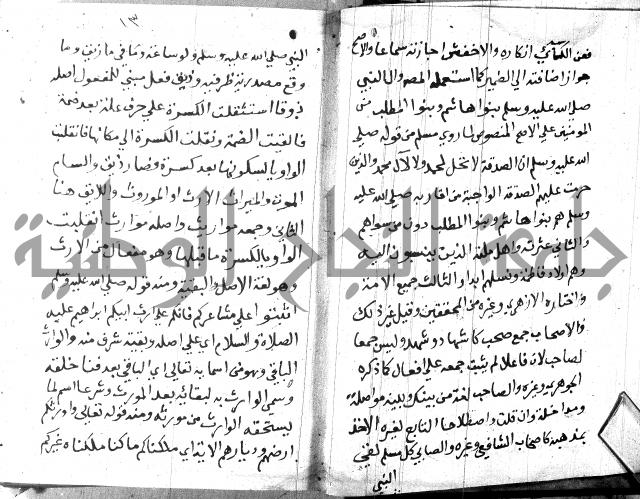 فعن الكسائي انكاره والاخفش اجازته سماعا والاصح
جواز اضافته الى الضمير كما استعمله المصـ وال النبي
صلى الله عليه وسلم بنوا هاشم وبنوا المطلب
على الاصح المنصوص لما روى مسلم من قوله صلى
الله عليه وسلم ان الصدقة لا تحل لمحمد ولا لال محمد والذين
حرمت عليهم الصدقة الواجبة من اقاربه صلى الله عليه
وسلم هم بنوا هاشم وبنو المطلب دون من سواهم
والثاني عترته واهل بيته الذين ينسبون اليه
وهم اولاد فاطمة ونسلهم ابدا والثالث جميع الامة
واختاره الازهري وغيره من المحققين وقيل غير ذلك
والاصحاب جمع صحب كاشهاد وشهد وليس جمعا
لصاحب لان فاعلا لم يثبت جمعه على افعال كما ذكره
الجوهري وغيره والصاحب لغة من بينك وبينه مواصلة
ومداخلة وان قلت واصطلاحا التابع لغيره الاخذ
بمذهبه كاصحاب الشافعي وغيره والصحابي كل مسلم لقي
النبي
١٣
النبي صلى الله عليه وسلم ولو ساعة وما في ما زيق وما
وقع مصدرية ظرفية وذيق فعل مبني للمفعول اصله
ذوقا استثقلت الكسرة على حرف علة بعد ضمة
فالقيت الضمة ونقلت الكسرة الى مكانها فانقلبت
الواو يا لسكونها بعد كسرة وصار ذيق والسام
الموت والميراث الارث او الموروث واللايق هنا
الثاني وجمعه مواريث واصله موارث انقلبت
الواو يا لكسرة ما قبلها وهو مفعال من الارث
وهو لغة الاصل والبقية ومنه قوله صلى الله عليه وسلم
اثبتوا على مشاعركم فانكم على ارث ابيكم ابراهيم عليه
الصلاة والسلام اي على اصله وبقية شرف منه والوارث
الباقي وهو من اسمائه تعالى اي الباقي بعد فنا خلقه
وسمي الوارث به لبقائه بعد المورث وشرعا اسم لما
يستحقه الوارث من مورثه ومنه قوله تعالى واورثكم
ارضهم وديارهم الاية اي ملكناكم ما كنا ملكناه غيركم
جامعة النجاح الوطنية